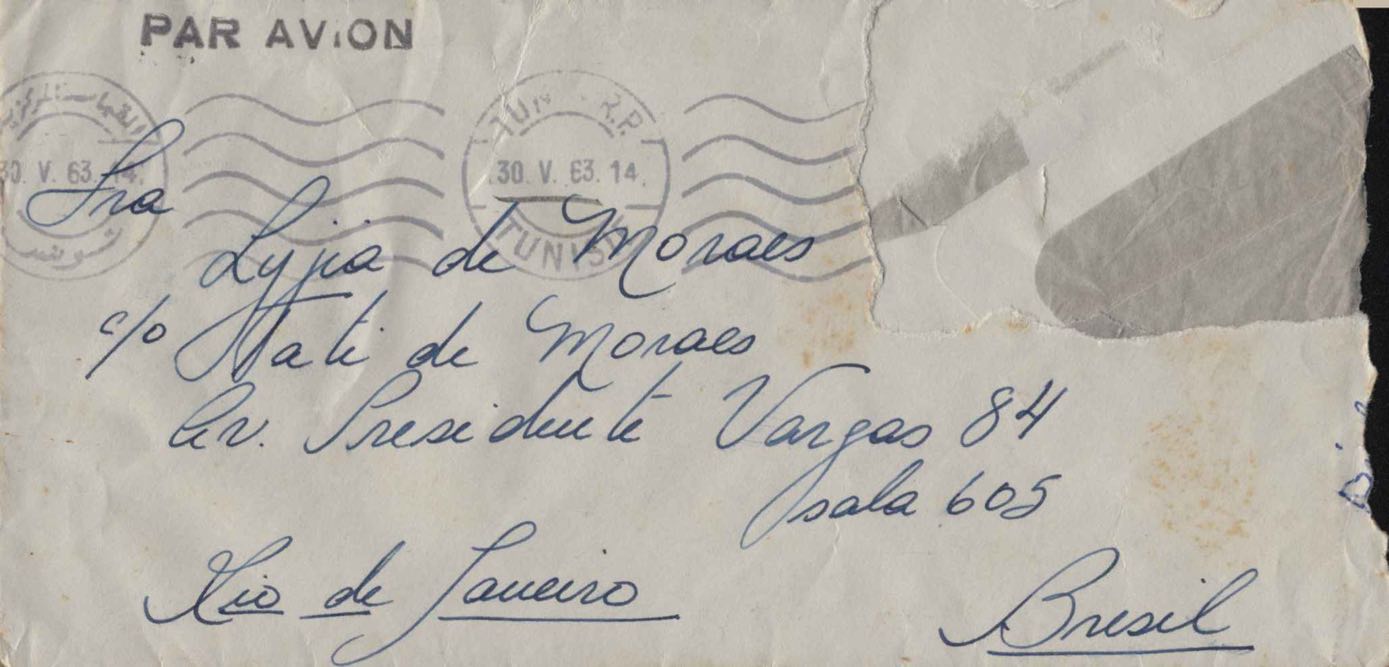 PAR AVION
30. V. 63. 14.
TUNIS R.P.
30. V. 63. 14.
Sra
Lygia de Moraes
c/o Tati de Moraes
Av. Presidente Vargas 84
sala 605
Rio de Janeiro
Bresil